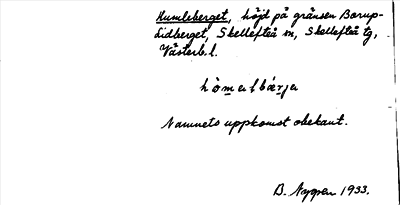 Humleberget, höjd på gränsen Borup-
Lidberget, Skellefteå sn, Skellefteå tg,
Västerb. l.
hòmalbǽrja
Namnets uppkomst obekant.
B. Nygren 1933.